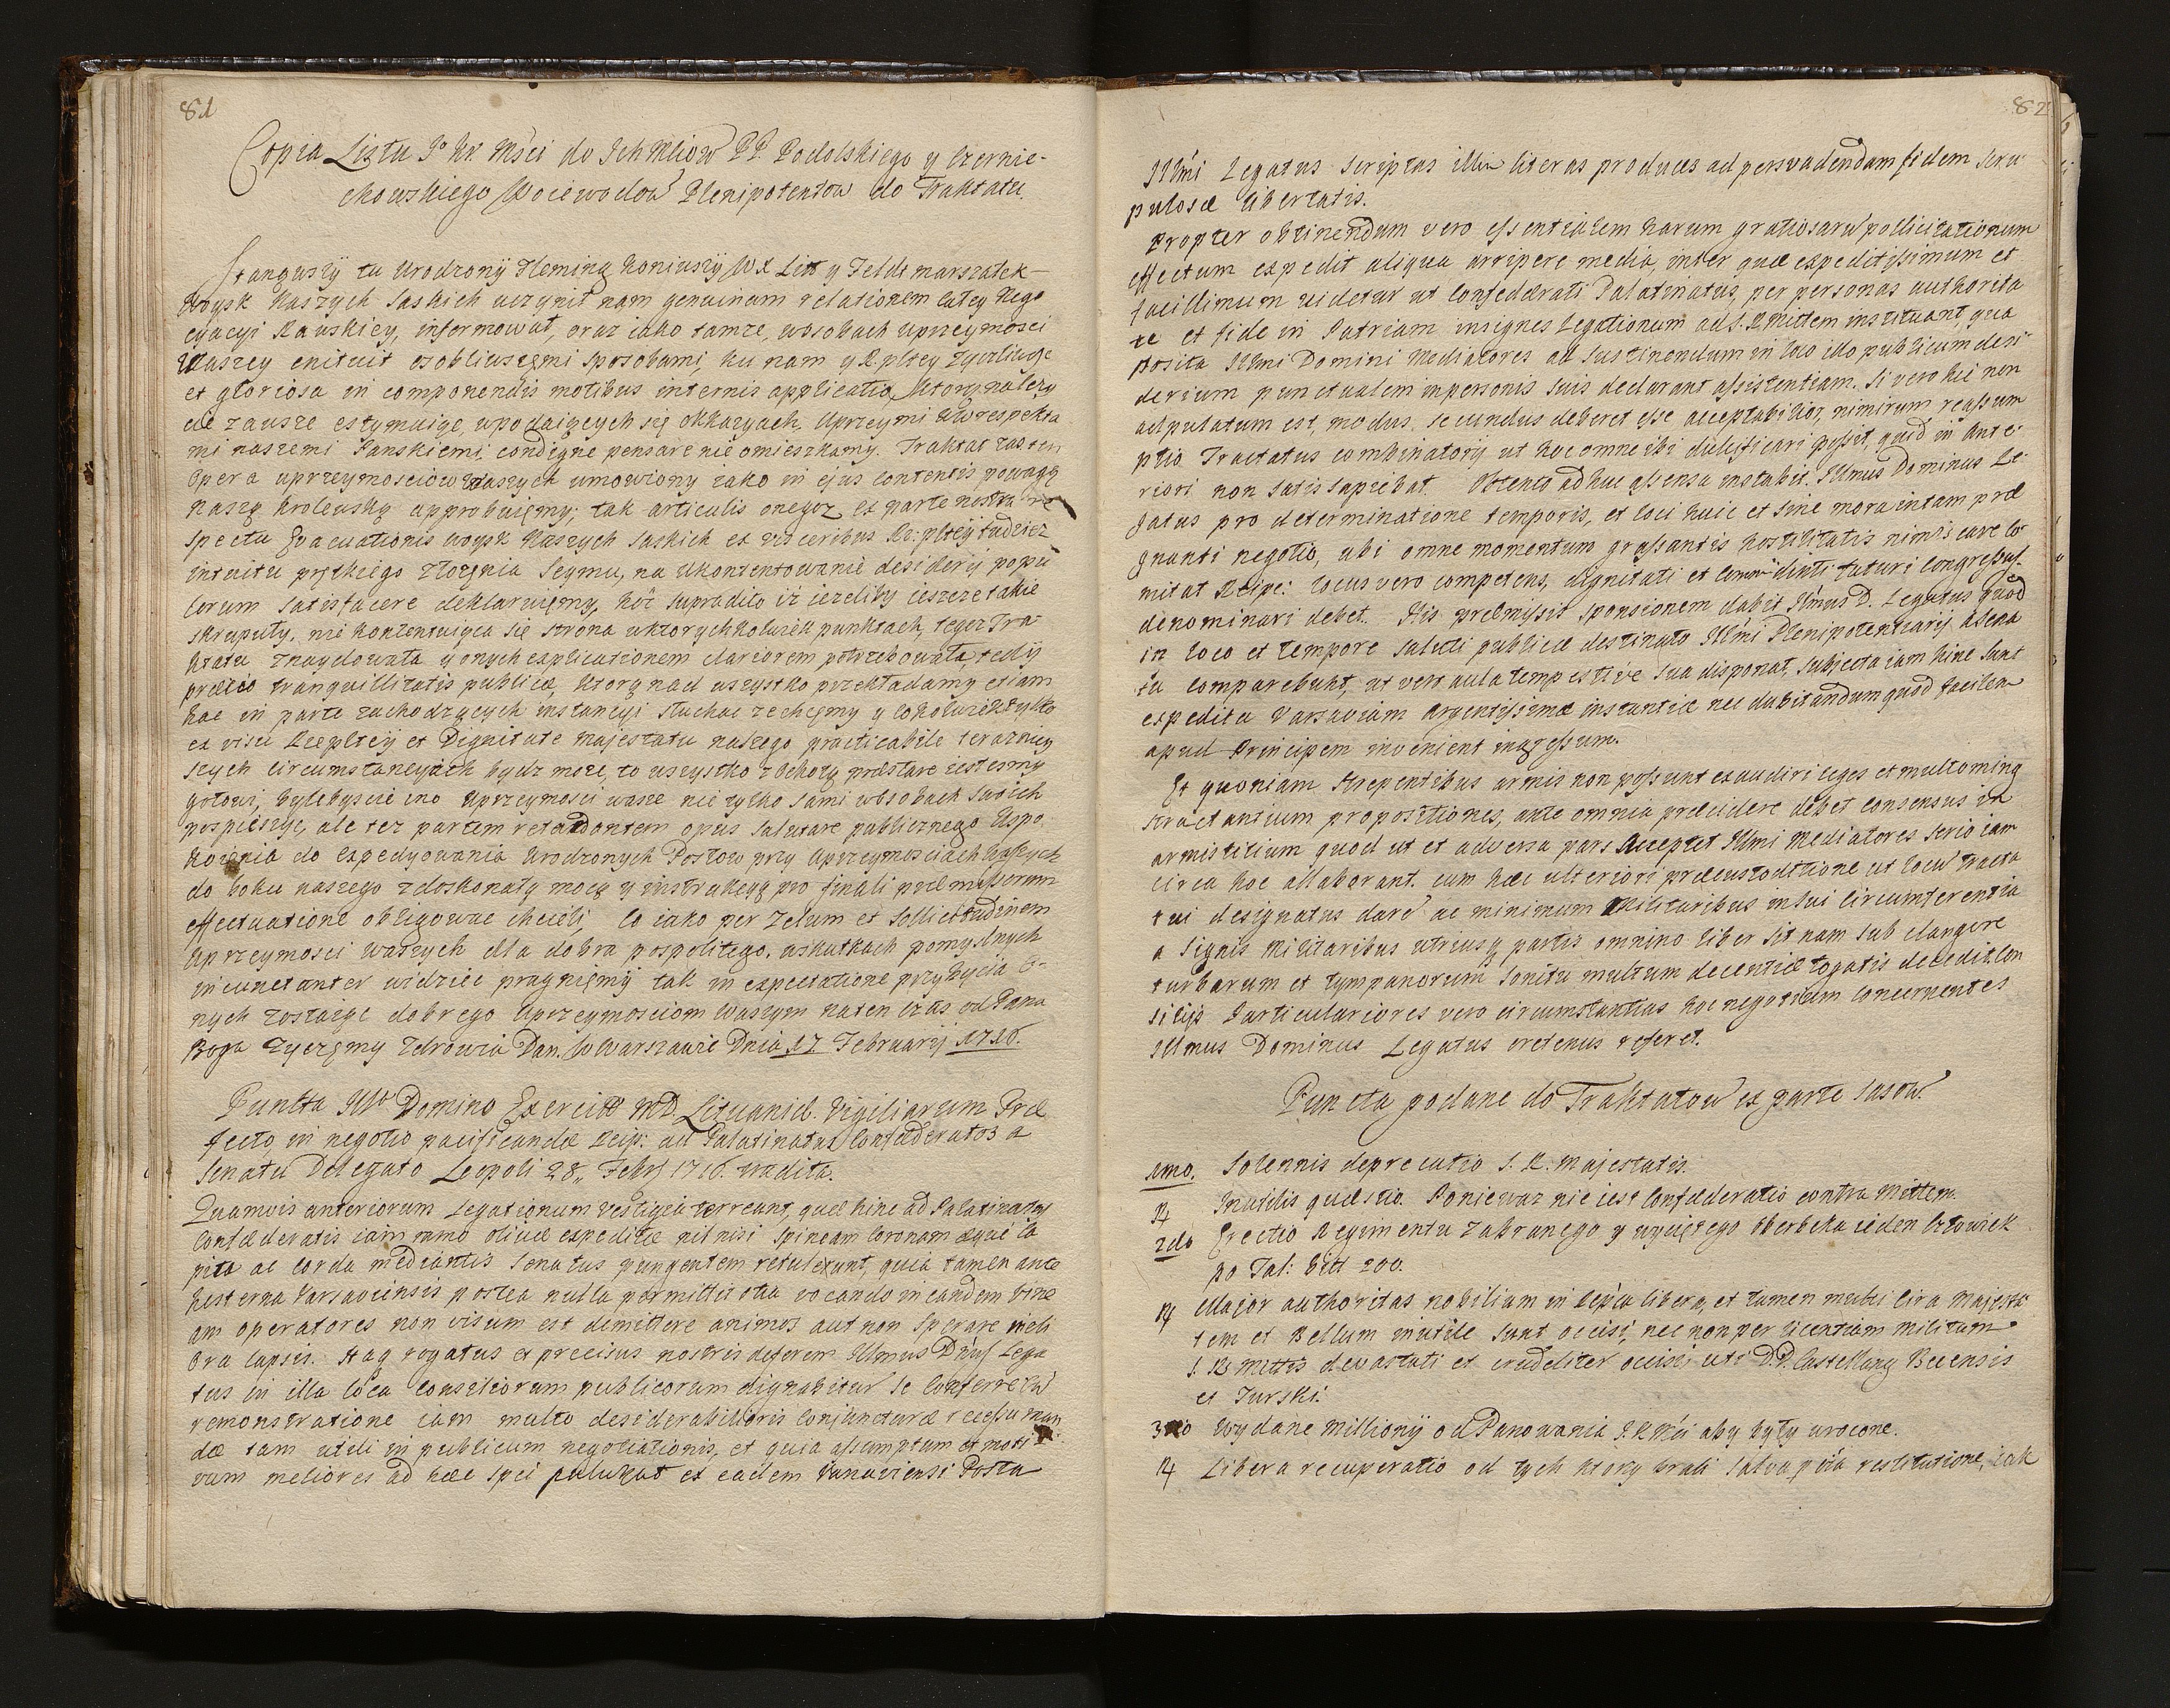 81
Copia Listu Jo Kr. Msci do Ichmliow PP. Podolskiego y Czernie-
chowskiego Woiewodow Plenipotentow do Traktatu.
Stanąwszÿ tu Urodzonÿ Fleming Koniuszÿ WX Litt y Feldt marszałek
Woysk Naszych Saskich uczynił nam genuinam relationem całey Nego
cyacyi Rawskiey, informował, oraz iako tamze, wosobach Uprzeymosci
Waszey enituit osobliwszęmi sposobami, ku nam y R.pltey zyczliwość
et gloriosa in componendis motibus internis applicatio, ktorą nalezy
cie zawsze estymuiąc wpodaiących się okkazyach, Uprzeymi Ww respekta
mi naszemi Panskiemi condigne pensare nie omieszkamy. Traktat zas ten
opera uprzeymosciow Waszych umowiony iako in ejus contentis powagą
naszą krolewską approbuięmy; tak articulis onegoz ex parte nostra re
spectu Evacuationis woysk Naszych Saskich ex visceribus Rz:pltey tudziez
intuitu prętkiego złozęnia Seymu, na ukontentowanie desiderij popu
lorum satisfacere deklaruięmy, hoc supradito iz iezeliby ieszcze takie
skrupuły, nie kontentuiąca się strona wktorychkolwiek punktach, tegoz Tra
ktatu znaydowała y onych explicationem clariorem potrzebowała, tedÿ
pretio tranquillitatis publicæ, ktorą nad wszystko przekładamy etiam
hac in parte zachodzących instancyi słuchac zechcęmy y cokolwiek tylko
ex visu Rzepltey et Dignitate Majestatu naszego practicabile teraznięy
szych circumstancyach bydz może, to wszystko zochotą præstare iestesmy
gotowi, bylebyscie ino Uprzeymosci wasze nie tylko sami wosobach swoich
pospieszyć, ale tez partem retardantem opus salutare publicznego Uspo
koięnia do expedyowania Urodzonych Posłow przy Uprzeymosciach Waszych
do boku naszego zdoskonałą mocą y instrukcyą pro finali præmissorum
effectuatione obligowac chcieli, co iako per zelum et sollicitudinem
Uprzeymosci Waszych dla dobra pospolitego, wskutkach pomyslnych
incunctanter widziec pragnięmÿ tak in expectatione przybycia o-
nych zostaiąc dobrego Uprzeymosciom Waszym naten czas od Pana
Boga zyczęmy zdrowia Dan. w Warszawie Dnia 17 Februarij 1716.
Puncta Illo Domino Exercitt M.D. Lituaniæ Vigiliarum Præ
fecto, in negotio pacificandæ Reip: ad Palatinatus Confæderatos a
Senatu Delegato Leopoli 28,, Febrj 1716. tradita.
Quamvis anteriorum Legationum vestigia terreant, quæ hinc ad Palatinatus
Confæderatis iam ramo olivæ expeditæ nil nisi spineam coronam Aquæ ca
pita ac corda mediantis Senatus pungentem retulerunt, quia tamen ante
hesterna Varsaviensis postea nulla permittit otia vocando in eandem vine
am operatores non visum est demittere animos aut non sperare meli
ora lapsis. Itaq rogatus et precibus nostris deferens Illmus Dnus Lega
tus in illa loca consiliorum publicorum dignabitur se conferre cu
remonstratione iam multo desiderabilioris conjuncturæ recessu mun
dæ tam utili in publicum negotiationis, et quia assumptum et moti
vum meliores ad hæc spei pululat ex eadem Varsaviensi Posta
82
Illmi Legatus scriptas illin literas producas ad persvadendam fidem scru
pulosæ libertatis.
Propter obtinendum vero essentialem harum gratiosaru pollicitationum
effectum expedit aliqua arripere media, inter quæ expeditissimum et
facillimum videtur ut Confæderati Palatinatus, per personas authorita
te et fide in Patriam insignes Legationum ad S.R.Mttem instituant, qua
posita Illmi Domini Mediatores ad sustinendum in loco illo publicum desi
derium punctualem in personis suis declarant assistentiam. Si vero hic non
adpulatum est, modus secundus deberet esse acceptabilior, nimirum reassum
ptio Tractatus combinatorij ut hoc omne ibi dulcificari possit, quid in ante
riori non satis sapiebat. Obtento ad huc assensu instabit Illmus Dominus Le
gatus pro determinatione temporis, et loci huic et sine mora intam præ
gnanti negotio, ubi omne momentum grassantis hostilitatis nimis care co
mitat Reipc: locus vero competens, dignitati et comoditati futuri congressus
denominari debet. His præmissis sponsionem dabit Illmus D. Legatus quod
in loco et tempore saluti publicæ destinato Illmi Plenipotentiarij a Sena
tu comparebunt, ut vero aula tempestive sua disponat, subjecta iam hinc sunt
expedita Varsaviam Urgentissimæ instantiæ nec dubitandum quod facilem
apud Principem invenient ingressum.
Et quoniam strepentibus armis non possunt exaudiri leges et multo minq
stractantium propositiones, ante omnia præcedere debet consensus in
armistitium quod ut et adversa pars Acceptet Illmi Mediatores serio iam
circa hoc allaborant. cum hac ulteriori præcustoditione ut locu tracta
tui designatus dare ac minimum Militaribus in sui circumferentia
a signis Militaribus utriusq partis omnino liber sit nam sub clangore
turbarum et tympanorum sonitu multum decentiæ togatis decedit con
silijs Particulariores vero circumstantias hoc negotium concernentes
Illmus Dominus Legatus oretenus referet.
Puncta podane do Traktatow ex parte Sasow.
1mo. Solennis deprecatio S. R. Majestatis.
R Inutilis quæstio. Poniewaz nie iest Confæderatio contra Mittem.
2do Erectio Regimentu zabranego y wyciętego Oberbeka ieden człowiek
po Tal: bitt 200.
R Major authoritas nobilium in Repca libera, et tamen multi cira Majesta
tem et Bellum inutile sunt occisi, nec non per licentiam militum
S. R Mittis devastati et crudeliter occisi, uti D.D. Castellang Becensis
et Turski.
3tio Wydane Millionÿ od Panowania J. K Mci aby były wrocone.
R Libera recuperatio od tych ktorzy brali salva pcia restitutione, iak